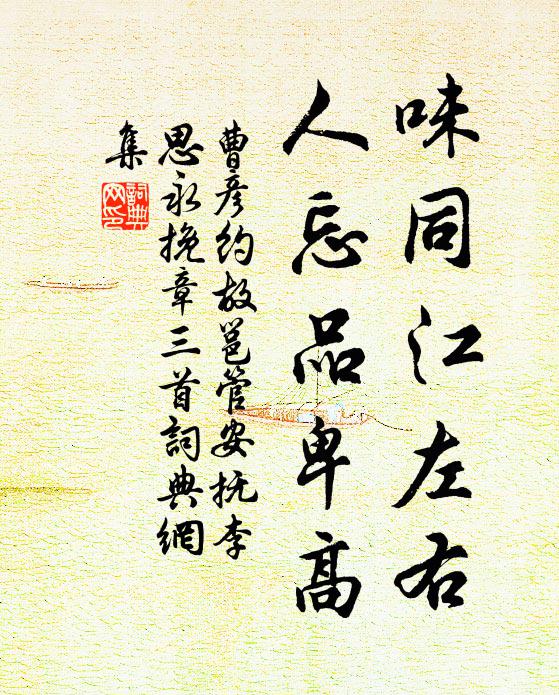 味同江左右
人忘品卑高
曹彦约故邕管安抚李
思永挽章三首詞典網
集
詞典
网印